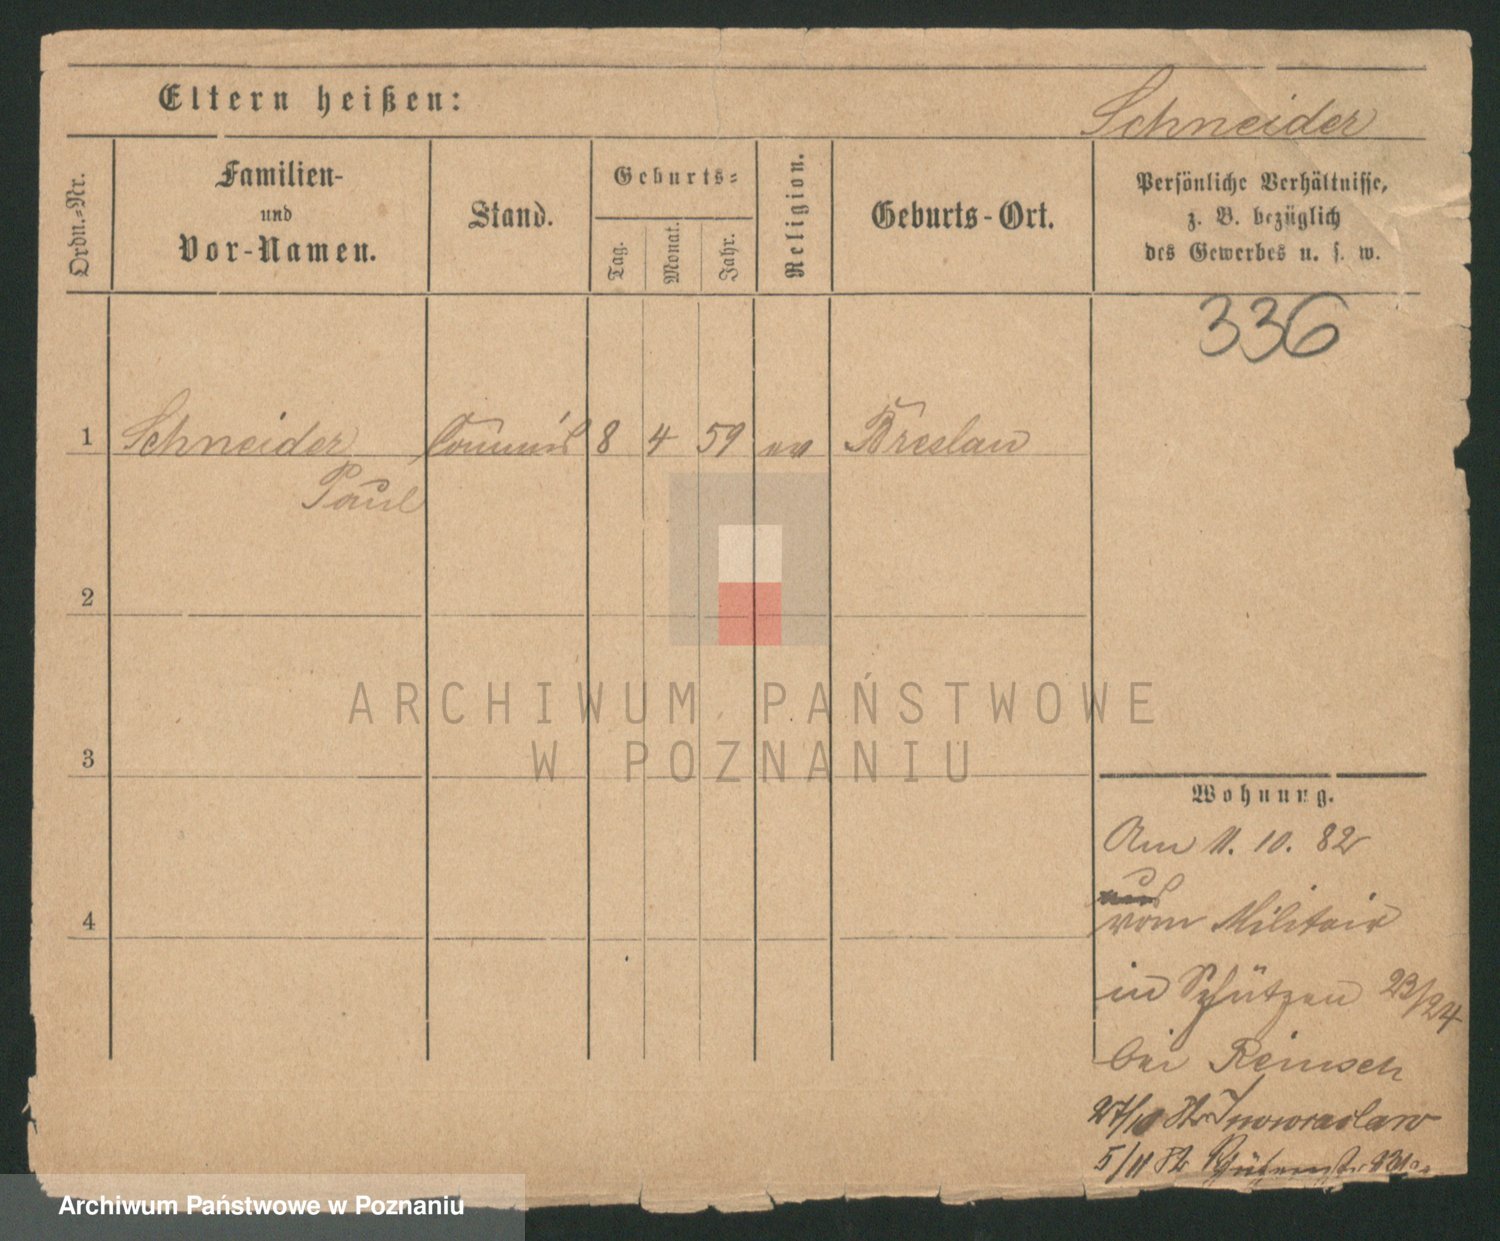 Eltern heißen:
Schneider
Ordn.=Nr.
Familien-
und
Vor-Namen.
Stand.
Geburts=
Tag.
Monat.
Jahr.
Religion.
Geburts-Ort.
Persönliche Verhältnisse,
z. B. bezüglich
des Gewerbes u. s. w.
336
1 Schneider Commis 8 4 59 ev Breslau
Paul
2
3
4
Wohnung.
Am 11. 10. 82
vom Militair
in Schützen 23/24
bei Reinsch
27/10 Inowraclaw
5/11
ARCHIWUM PAŃSTWOWE
W POZNANIU
Archiwum Państwowe w Poznaniu